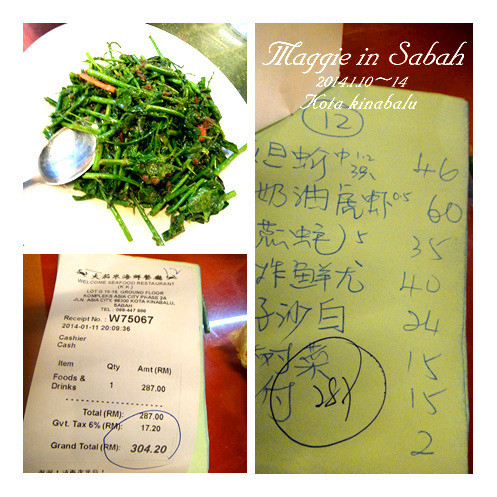 Maggie in Sabah
2014.1.10～14
Kota kinabalu
12
46
奶油虎虾 0.5 60
5 35
炸鲜尤 40
子沙白 24
菜 15
15
287
2
大茄來海鮮餐廳
WELCOME SEAFOOD RESTAURANT
(K.K.)
LOT G 15-18, GROUND FLOOR
KOMPLEKS ASIA CITY PHASE 2A
JLN. ASIA CITY, 88300 KOTA KINABALU,
SABAH
TEL : 088-447 866
Receipt No.: W75067
2014-01-11 20:09:36
Cashier
Cash
Item Qty Amt (RM)
Foods & 1 287.00
Drinks
Total (RM): 287.00
Gvt. Tax 6% (RM): 17.20
Grand Total (RM): 304.20